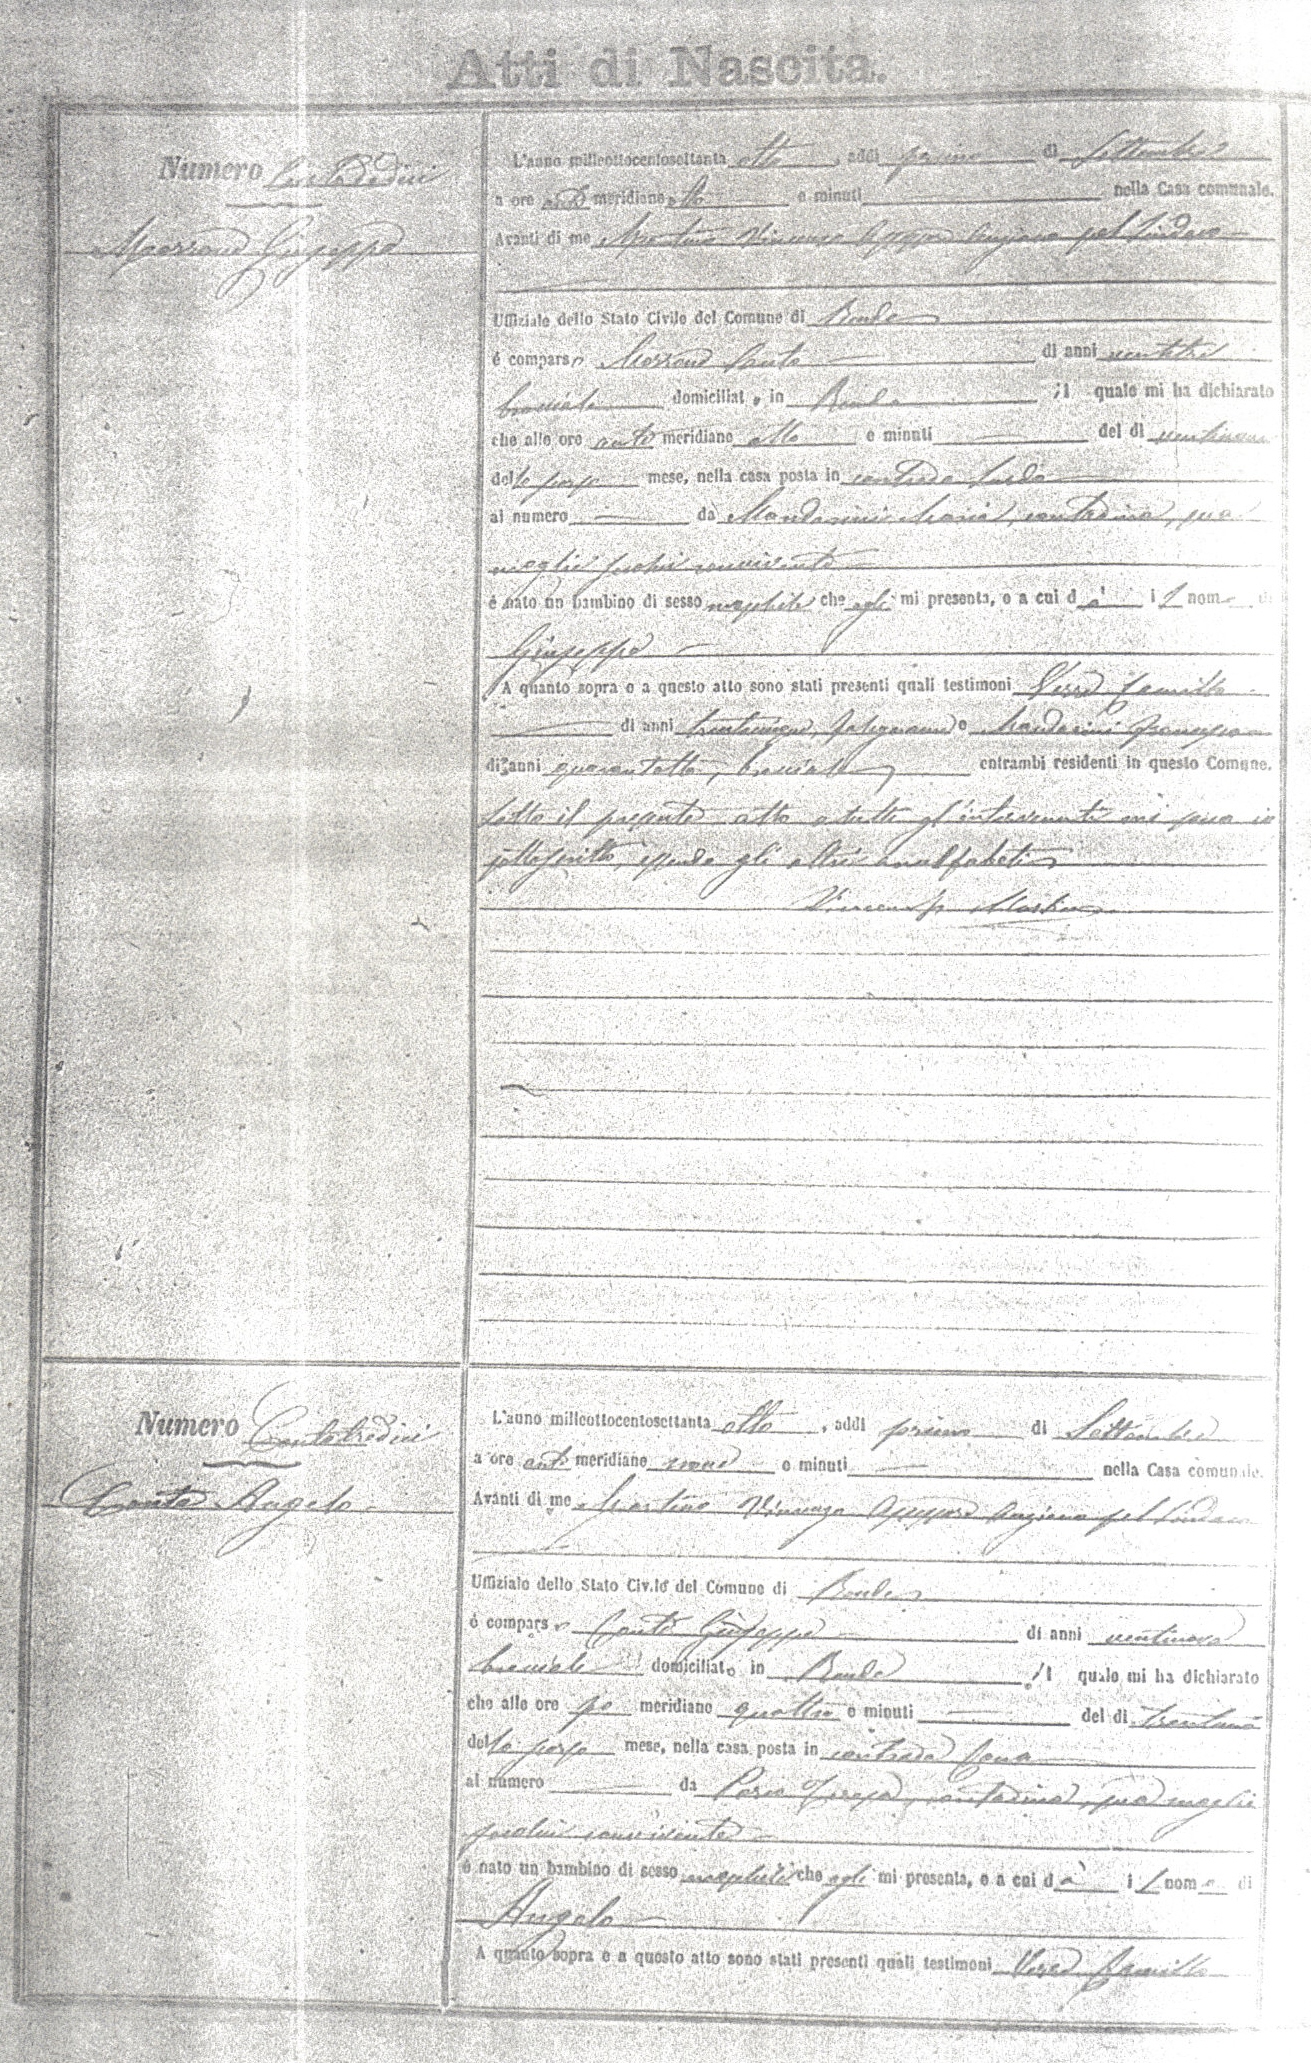 Atti di Nascita.
Numero Centododici
Giuseppe
L'anno milleottocentosettanta otto, addi primo di Settembre
a ore anti meridiane otto e minuti nella Casa comunale.
Avanti di me Martino Vincenzo Assessore Anziano pel Sindaco
Uffiziale dello Stato Civile del Comune di Rende
é comparso Santo di anni ventitre
bracciale domiciliato in Rende il quale mi ha dichiarato
che alle ore anti meridiane otto e minuti del dì ventinove
dello scorso mese, nella casa posta in contrada
al numero da Mandarini Maria, contadina, sua
moglie seco lui convivente
é nato un bambino di sesso maschile che egli mi presenta, e a cui dà il nome di
Giuseppe
A quanto sopra e a questo atto sono stati presenti quali testimoni Camillo
di anni falegname e Mandarini Francesco
di anni quarantotto, bracciale entrambi residenti in questo Comune.
Letto il presente atto a tutti gl'intervenuti mi sono io
sottoscritto, essendo gli altri analfabeti
Vincenzo Martino
Numero Centotredici
Conte Angelo
L'anno milleottocentosettanta otto, addi primo di Settembre
a ore anti meridiane nove e minuti nella Casa comunale.
Avanti di me Martino Vincenzo Assessore Anziano pel Sindaco
Uffiziale dello Stato Civile del Comune di Rende
é comparso Conte Giuseppe di anni ventinove
bracciale domiciliato in Rende il quale mi ha dichiarato
che alle ore po meridiane quattro e minuti del dì trentuno
dello scorso mese, nella casa posta in contrada
al numero da Teresa, contadina, sua moglie
seco lui convivente
é nato un bambino di sesso maschile che egli mi presenta, e a cui dà il nome di
Angelo
A quanto sopra e a questo atto sono stati presenti quali testimoni Camillo